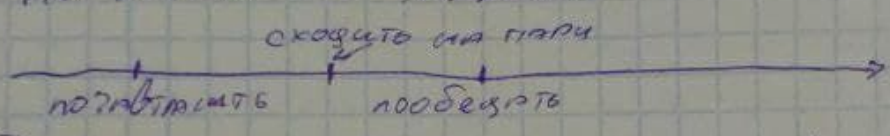 сходить на пары
позавтракать пообедать